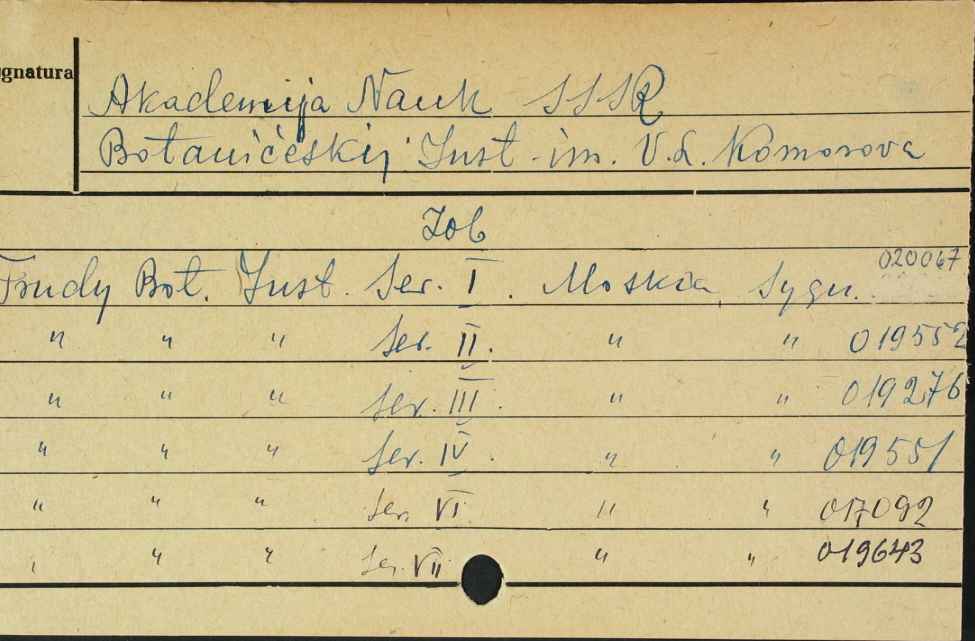 gnatura
Akademija Nauk SSSR
Botaničeskij Inst. im. V.L. Komorova
Zob
Trudy Bot. Inst. Ser. I. Moskva Sygn. 020067
" " " Ser. II. " " 019552
" " " Ser. III. " " 019276
" " " Ser. IV. " " 019551
" " " Ser. VI " " 017092
" " " Ser. VII " " 019643